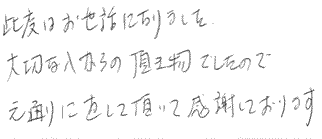 此度はお世話になりました。
大切な人からの頂き物でしたので
元通りに直して頂いて感謝しております